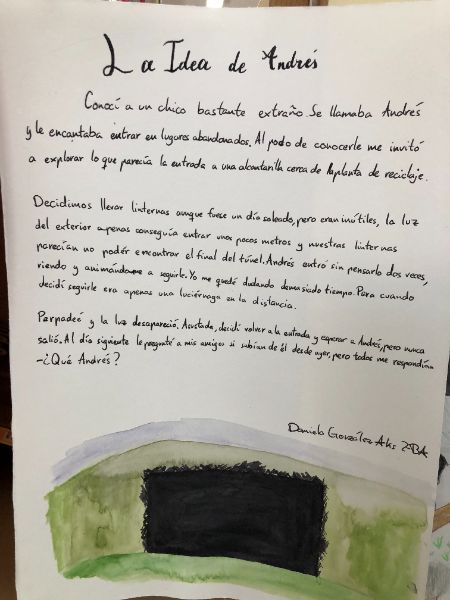 La Idea de Andrés
Conocí a un chico bastante extraño. Se llamaba Andrés
y le encantaba entrar en lugares abandonados. Al podo de conocerle me invitó
a explorar lo que parecía la entrada a una alcantarilla cerca de la planta de reciclaje.
Decidimos llevar linternas aunque fuese un día soleado, pero eran inútiles, la luz
del exterior apenas conseguía entrar unos pocos metros y nuestras linternas
parecían no podér encontrar el final del túnel. Andrés entró sin pensarlo dos veces,
riendo y animándome a seguirle. Yo me quedé dudando demasiado tiempo. Para cuando
decidí seguirle era apenas una luciérnaga en la distancia.
Parpadeé y la luz desapareció. Asustada, decidí volver a la entrada y esperar a Andrés, pero nunca
salió. Al día siguiente le pregunté a mis amigos si sabían de él desde ayer, pero todos me respondían
-¿Qué Andrés?
Daniela González 2ºBA